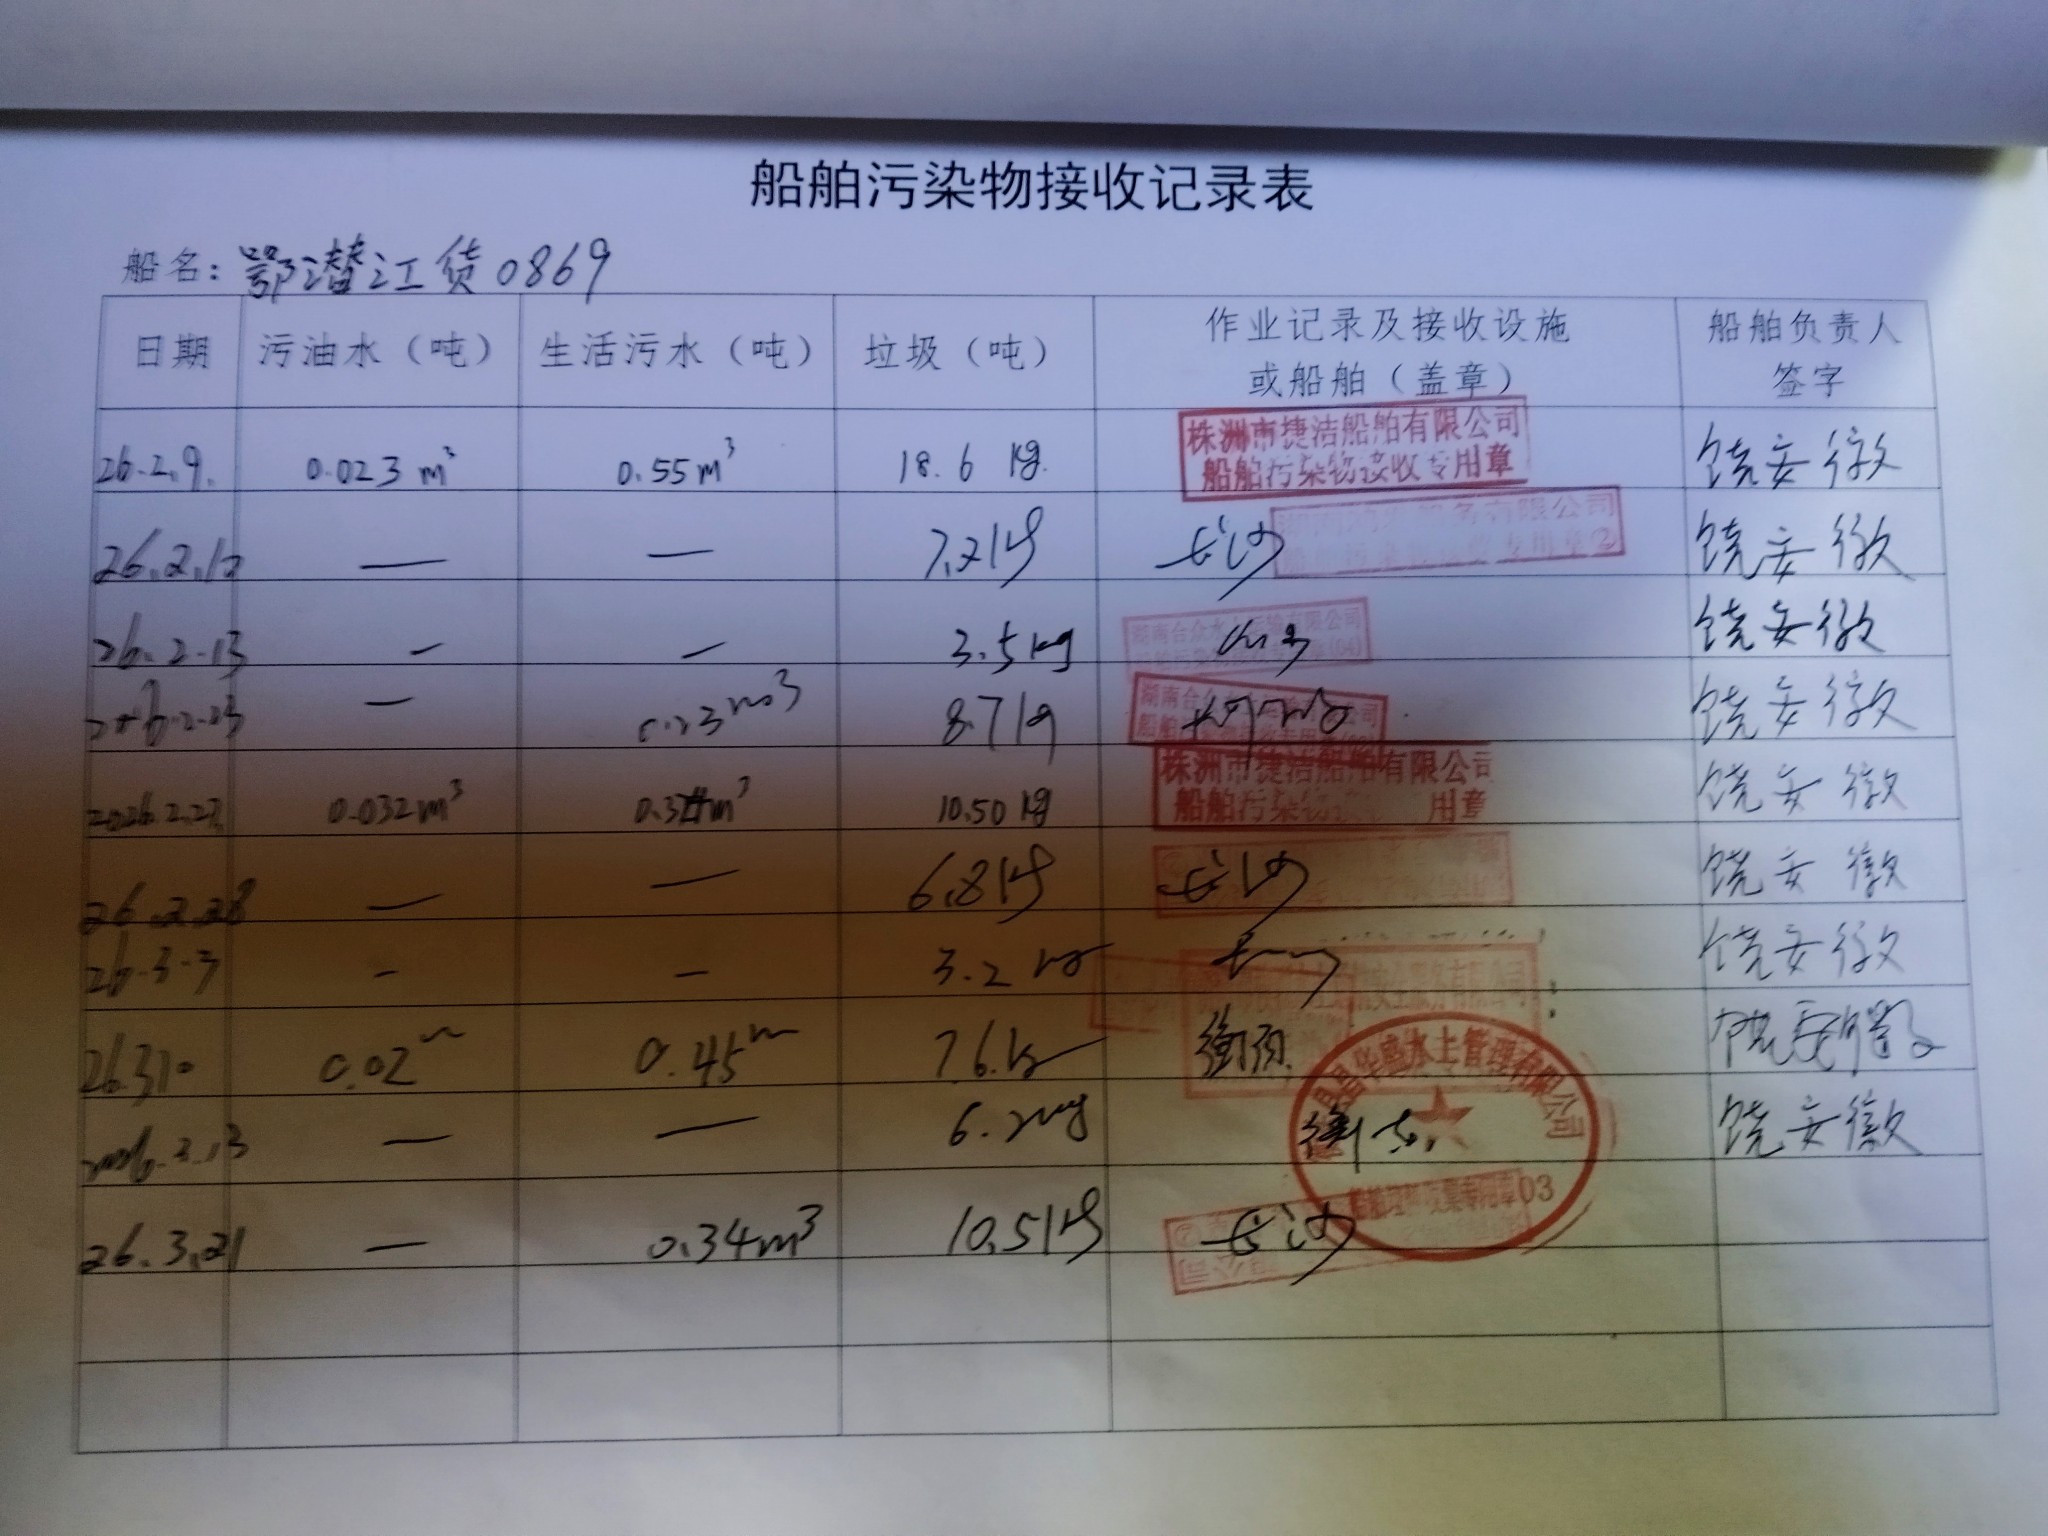 船舶污染物接收记录表
船名：鄂潜江货0869
日期 污油水（吨） 生活污水（吨） 垃圾（吨） 作业记录及接收设施或船舶（盖章） 船舶负责人签字
26.2.9. 0.023 m³ 0.55m³ 18.6 kg. 株洲市捷洁船舶有限公司 船舶污染物接收专用章 饶安徽
26.2.12 — — 7.2kg 长沙 饶安徽
26.2.13 — — 3.5kg 饶安徽
— 0.23m³ 8.7kg 饶安徽
2026.2.27. 0.032m³ 10.50 kg 株洲市捷洁船舶有限公司 船舶污染物 用章 饶安徽
26.2.28 — — 6.8kg 长沙 饶安徽
26.3.7 — — 3.2kg 饶安徽
26.3.10 0.02 0.45 7.6kg 衡阳
2026.3.13 — — 6.2kg 华盛水上管理有限公司 03 饶安徽
26.3.21 — 0.34m³ 10.5kg 长沙